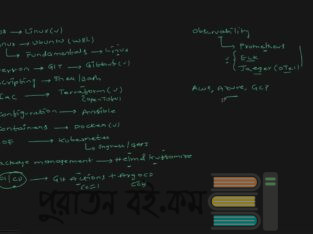 → Linux(v)
→ Ubuntu (WSL)
→ Fundamentals → Linux
→ GIT → GitHub(v)
Scripting → Shell/Bash
IaC → Terraform(v)
Configuration → Ansible
Containers → Docker(v)
→ Kubernetes
Package management → Helm & Kustomize
CI/CD → Git Actions + ArgoCD
Observability
→ Prometheus
ELK
Jaeger (OTel)
AWS, Azure, GCP
পুরাতন বই.কম